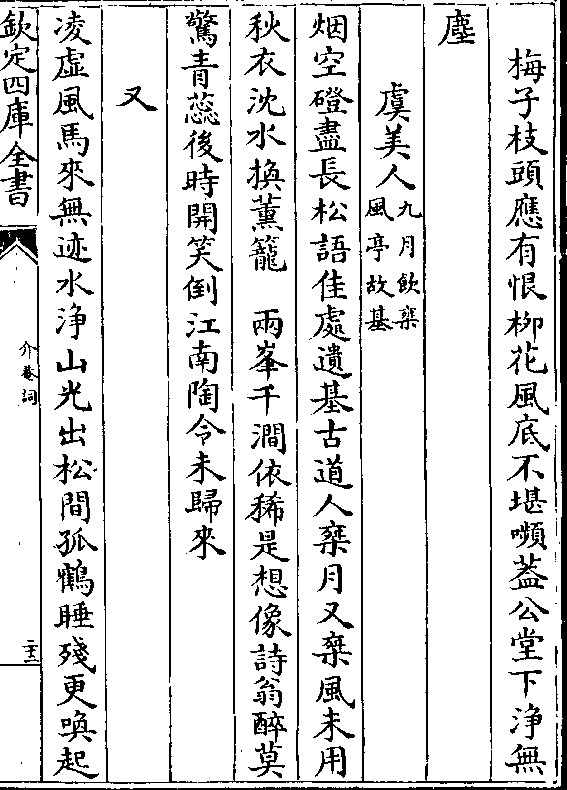 梅子枝頭應有恨栁花風底不堪嚬葢公堂下浄無
塵
虞美人九月飲椉風亭故基
烟空磴盡長松語佳處遺基古道人椉月又椉風未用
秋衣沈水換薰籠　兩峯千澗依稀是想像詩翁醉莫
驚青蕊後時開笑倒江南陶令未歸來
又
凌虛風馬來無迹水浄山光出松間孤鶴睡殘更喚起
欽定四庫全書
介菴詞
二十三